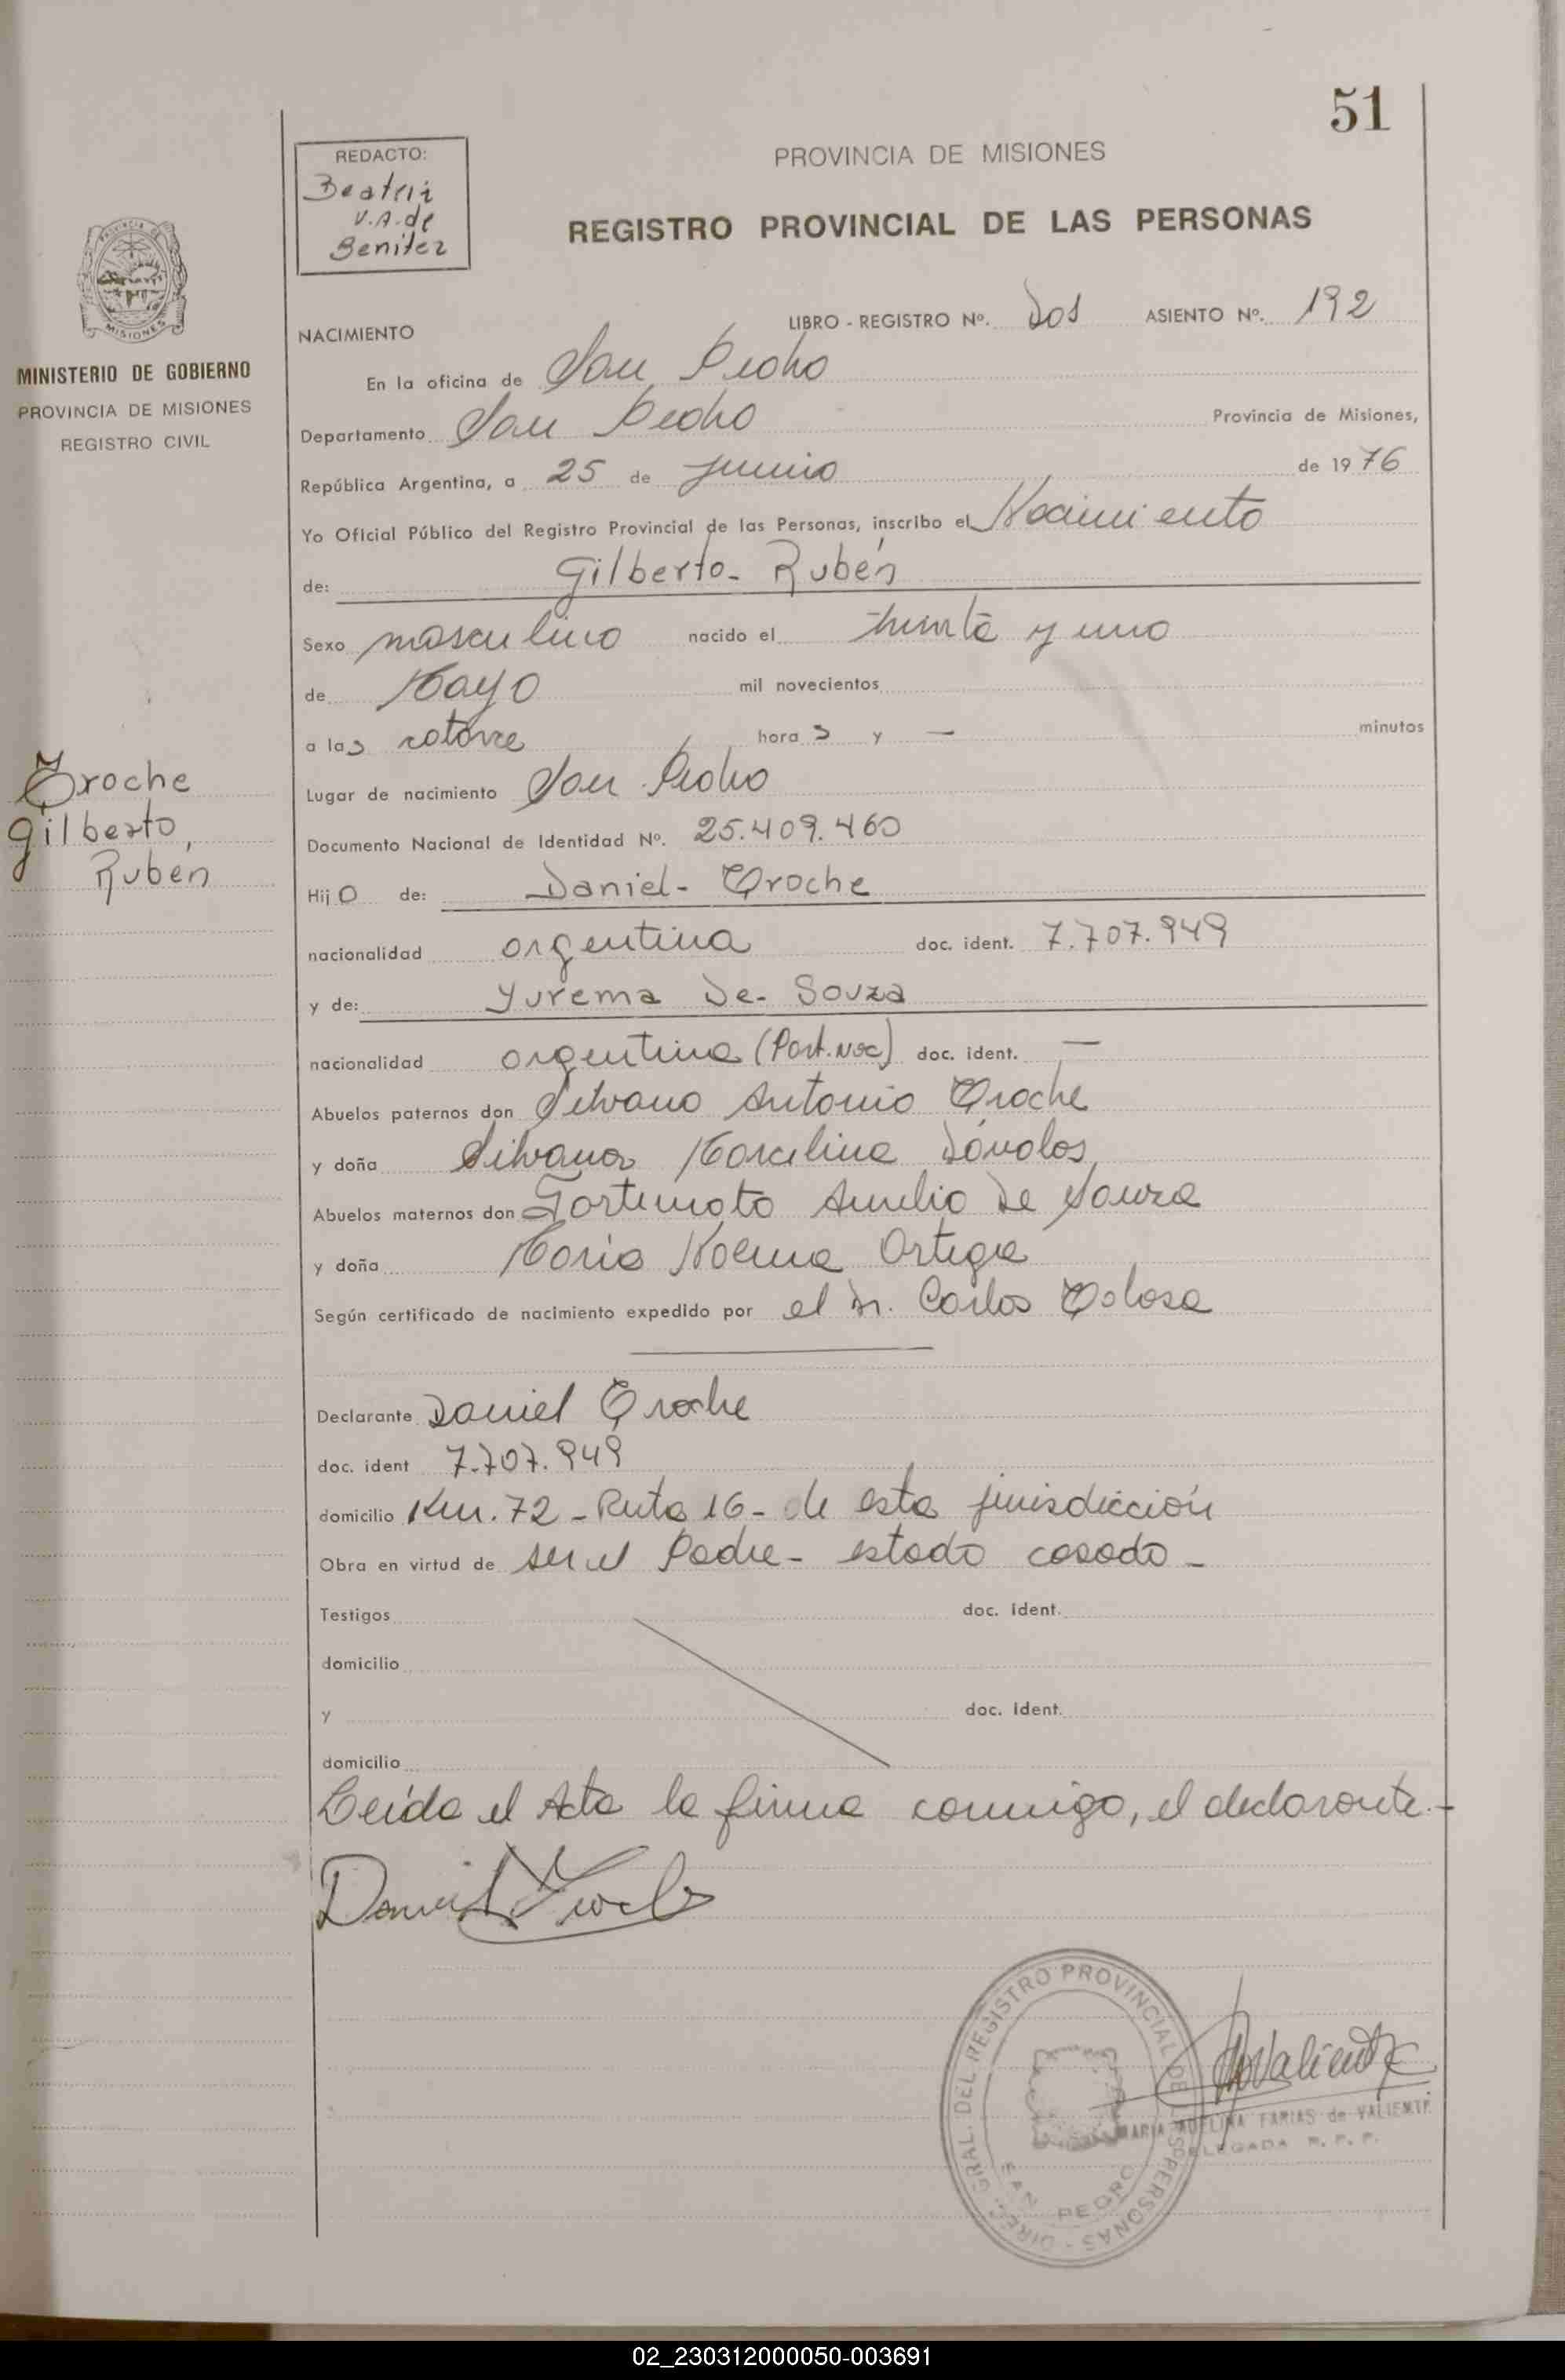 51
REDACTO:
Beatriz
V.A. de
Benitez
PROVINCIA DE MISIONES
REGISTRO PROVINCIAL DE LAS PERSONAS
PROVINCIA DE
MISIONES
MINISTERIO DE GOBIERNO
PROVINCIA DE MISIONES
REGISTRO CIVIL
NACIMIENTO
LIBRO - REGISTRO Nº. Dos ASIENTO Nº. 192
En la oficina de San Pedro
Departamento San Pedro Provincia de Misiones,
República Argentina, a 25 de Junio de 1976
Yo Oficial Público del Registro Provincial de las Personas, inscribo el Nacimiento
de: Gilberto- Rubén
Sexo masculino nacido el treinta y uno
de Mayo mil novecientos
a las catorce hora s y — minutos
Troche
Gilberto,
Rubén
Lugar de nacimiento San Pedro
Documento Nacional de Identidad Nº. 25.409.460
Hij o de: Daniel- Troche
nacionalidad argentina doc. ident. 7.707.949
y de: Yurema De- Souza
nacionalidad argentina (Part. Nac) doc. ident. —
Abuelos paternos don Silvano Antonio Troche
y doña Silvana Marcelina Dávalos
Abuelos maternos don Fortunato Aurelio De Souza
y doña María Noema Ortega
Según certificado de nacimiento expedido por el Dr. Carlos Tolosa
Declarante Daniel Troche
doc. ident 7.707.949
domicilio Km. 72 - Ruta 16 - de esta jurisdicción
Obra en virtud de ser el Padre - estado casado -
Testigos doc. ident.
domicilio
y doc. ident.
domicilio
Leída el Acta la firma conmigo, el declarante.-
Daniel Troche
DIREC. GRAL. DEL REGISTRO PROVINCIAL DE LAS PERSONAS -
SAN PEDRO
MARIA ADELINA FARIAS de VALIENTE
DELEGADA R. P. P.
02_230312000050-003691